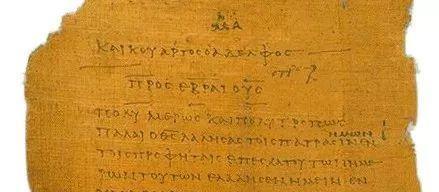 ΚΑΙ ΚΟΥΑΡΤΟϹ Ο ΑΔΕΛΦΟϹ
ΠΡΟϹ ΕΒΡΑΙΟΥϹ
ΠΟΛΥΜΕΡΩϹ ΚΑΙ ΠΟΛΥΤΡΟΠΩϹ
ΗΜΩΝ
ΠΑΛΑΙ Ο ΘϹ ΛΑΛΗϹΑϹ ΤΟΙϹ ΠΑΤΡΑϹΙΝ ΕΝ
ΤΟΙϹ ΠΡΟΦΗΤΑΙϹ ΕΠ ΕϹΧΑΤΟΥ ΤΩΝ ΗΜΕ
ΡΩΝ ΤΟΥΤΩΝ ΕΛΑΛΗϹΕΝ ΗΜΕΙΝ ΕΝ